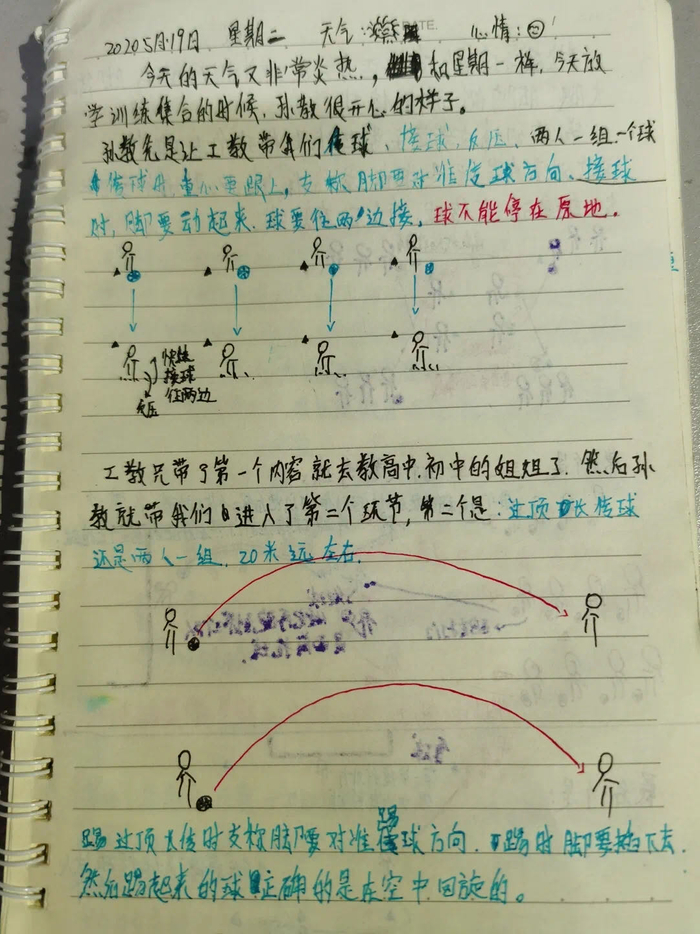 2020 5月19日 星期二 天气:燥热 心情:
今天的天气又非常炎热,和星期一样,今天放
学训练集合的时候,孙教很开心的样子。
孙教先是让工教带我们传球、接球,反压、两人一组一个球
传球时重心要跟上,支称脚要对准传球方向、接球
时,脚要动起来.球要往两边接,球不能停在原地。
快练
接球
往两边
反压
工教兄带了第一个内容就去教高中.初中的姐姐了.然后孙
教就带我们进入了第二个环节,第二个是:过顶长传球
还是两人一组,20米远左右.
踢过顶长传时支称脚要对准踢球方向.踢时脚要
下去.
然后踢起来的球正确的是在空中回旋的。